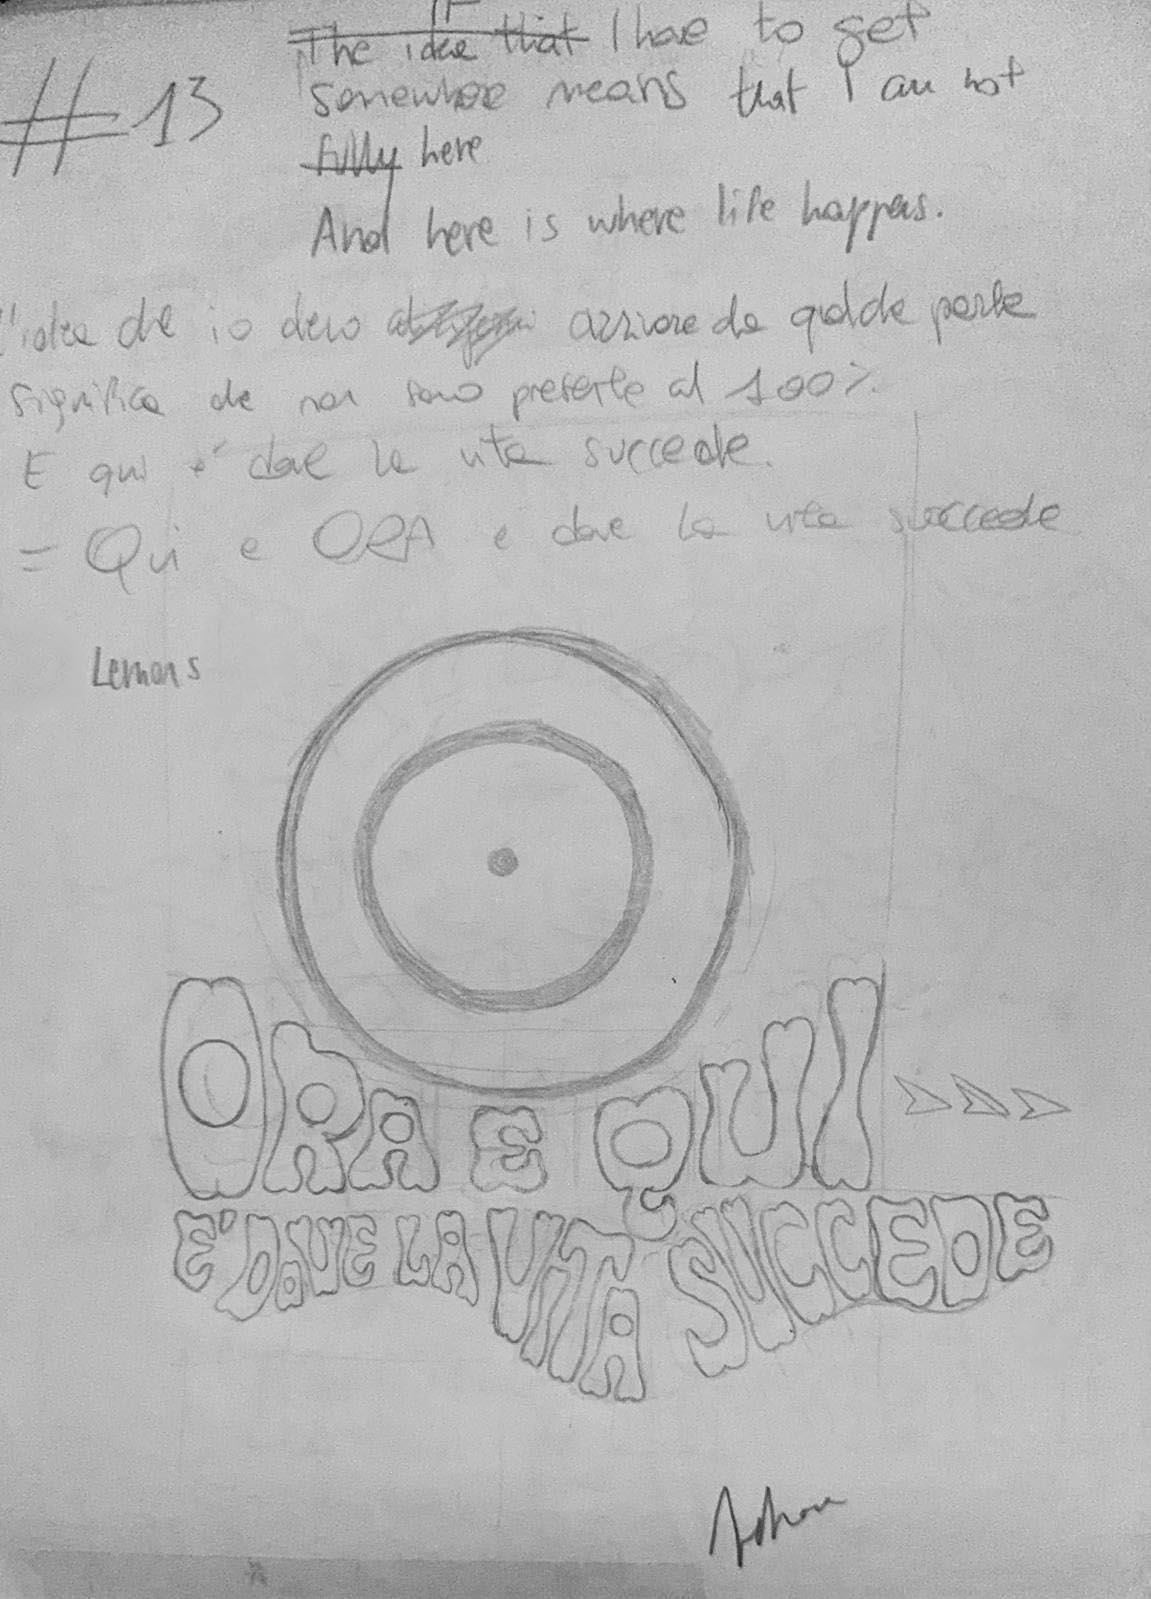 #13
IF
The idea that I have to get
somewhere means that I am not
fully here
And here is where life happens.
l'idea che io devo arrivare da qualche parte
significa che non sono presente al 100%.
E qui e' dove la vita succede.
= Qui e ORA e dove la vita succede
Lemons
ORA E QUI
E' DOVE LA VITA SUCCEDE